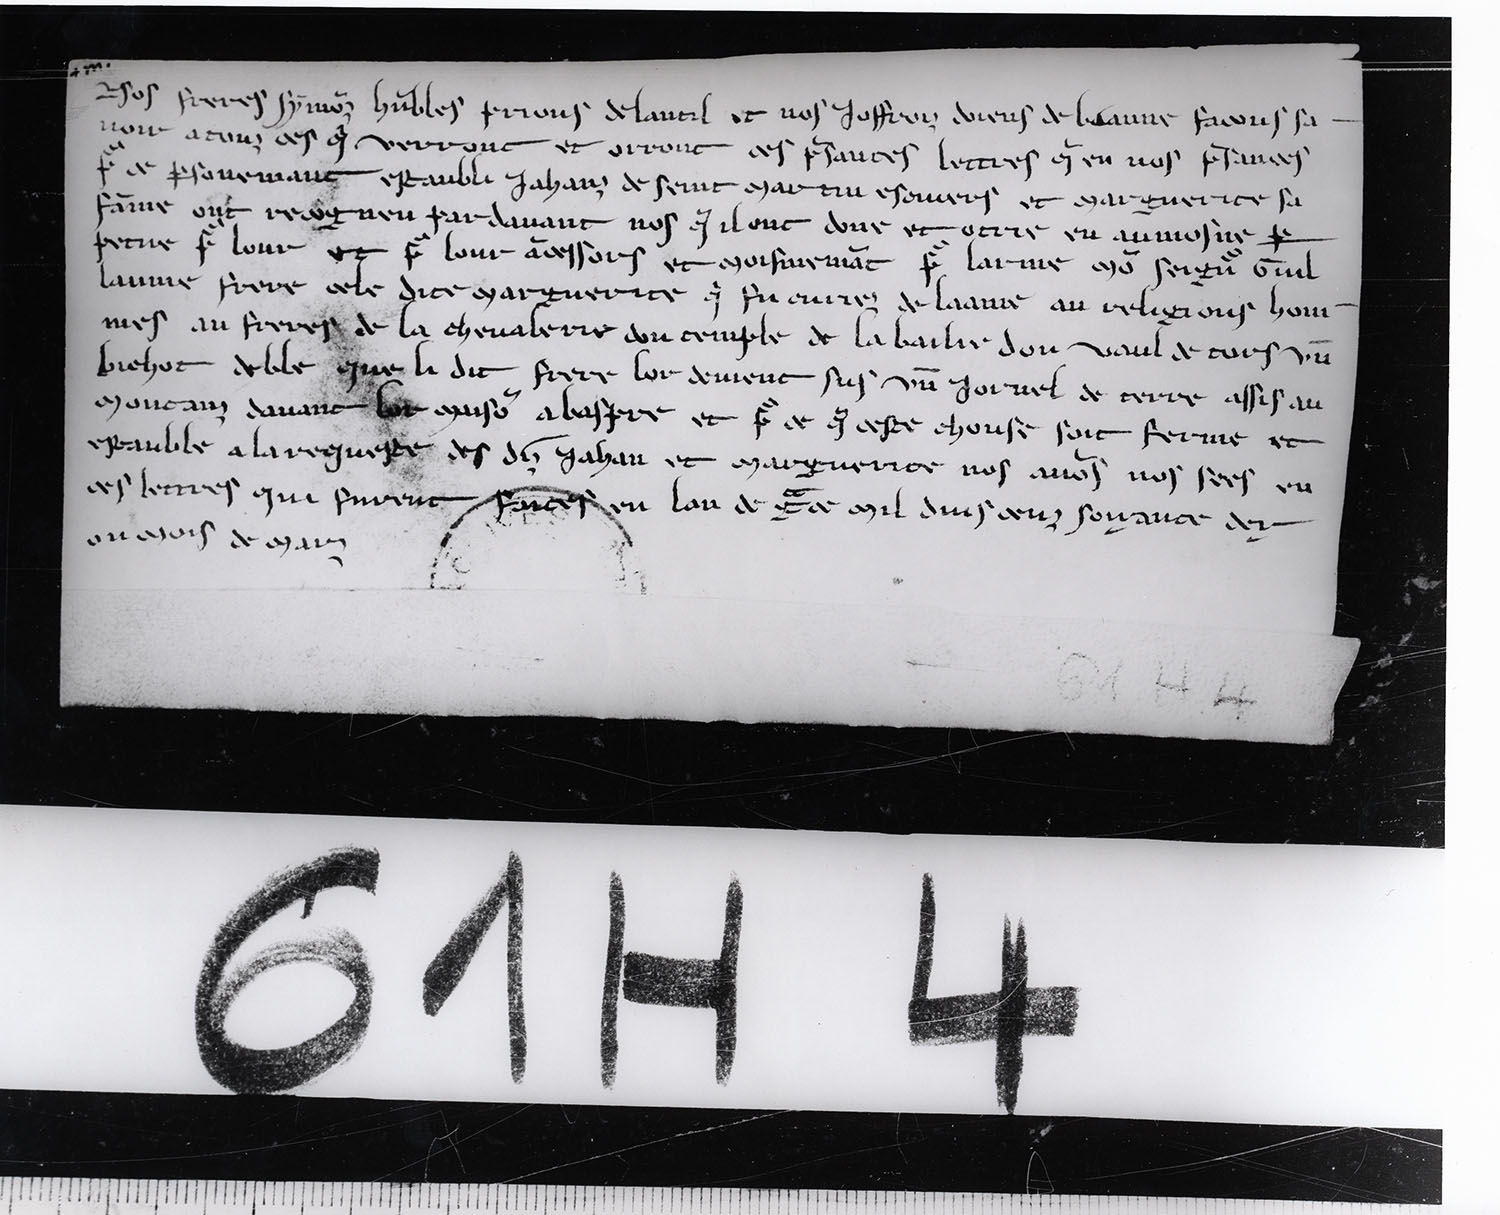 Nos freres symōz hūbles prious de lantil et nos Joffroiz doiens de laanne facons sa
uoir a touz ces q̄ verront et orront ces p̄sances lettres q̄ en nos p̄sances
p̄ ce p̄sonemant estaubli Jahanz de seint martin escuiers et marguerite sa
fāme ont recogneu par dauant nos q̄ il ont done et otrie en aumosne per
petue p̄ lour et p̄ lour ācessors et moismemāt p̄ larme mō seignō Guil
laume frere cele dite marguerite q̄ fu curez de laanne au religious hom
mes au freres de la cheualerie dou temple de la bailie dou vaul de tors vn̄
bichot de ble que li dit frere lor deuient sus vn̄ Jornel de terre assis au
montanz dauant lor maisō a baspre et p̄ ce q̄ ceste chouse soit ferme et
estauble a la requeste des diz Jahan et marguerite nos auōs nos sees en
ces lettres qui furent faites en lan de grāce mil dius cenz soixante dex
ou mois de marz
61 H 4
61H 4